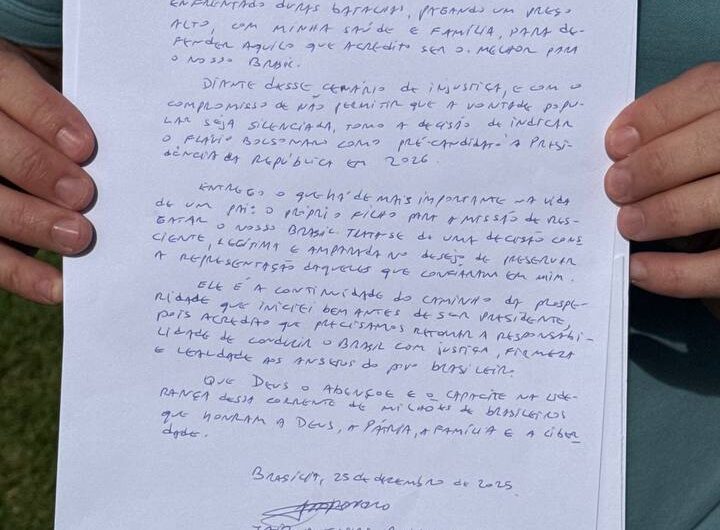 ENFRENTADO DURAS BATALHAS, PAGANDO UM PREÇO
ALTO, COM MINHA SAÚDE E FAMÍLIA, PARA DE-
FENDER AQUILO QUE ACREDITO SER O MELHOR PARA
O NOSSO BRASIL.
DIANTE DESSE CENÁRIO DE INJUSTIÇA, E COM O
COMPROMISSO DE NÃO PERMITIR QUE A VONTADE POPU-
LAR SEJA SILENCIADA, TOMO A DECISÃO DE INDICAR
O FLÁVIO BOLSONARO COMO PRÉ-CANDIDATO À PRESI-
DÊNCIA DA REPÚBLICA EM 2026.
ENTREGO O QUE HÁ DE MAIS IMPORTANTE NA VIDA
DE UM PAI: O PRÓPRIO FILHO PARA A MISSÃO DE RES-
GATAR O NOSSO BRASIL. TRATA-SE DE UMA DECISÃO CONS
CIENTE, LEGÍTIMA E AMPARADA NO DESEJO DE PRESERVAR
A REPRESENTAÇÃO DAQUELES QUE CONFIARAM EM MIM.
ELE É A CONTINUIDADE DO CAMINHO DA PROSPE-
RIDADE QUE INICIEI BEM ANTES DE SER PRESIDENTE,
POIS ACREDITO QUE PRECISAMOS RETOMAR A RESPONSABI-
LIDADE DE CONDUZIR O BRASIL COM JUSTIÇA, FIRMEZA
E LEALDADE AOS ANSEIOS DO POVO BRASILEIRO.
QUE DEUS O ABENÇOE E O CAPACITE NA LIDE-
RANÇA DESSA CORRENTE DE MILHÕES DE BRASILEIROS
QUE HONRAM A DEUS, A PÁTRIA, A FAMÍLIA E A LIBER
DADE.
BRASÍLIA, 25 DE DEZEMBRO DE 2025.